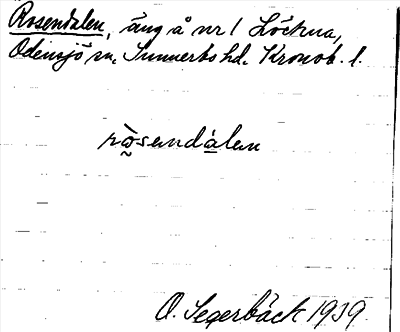 Rosendalen, äng å nr 1 Löckna,
Odensjö sn. Sunnerbo hd. Kronob. l.
ròsendàlen
O. Segerbäck 1939.